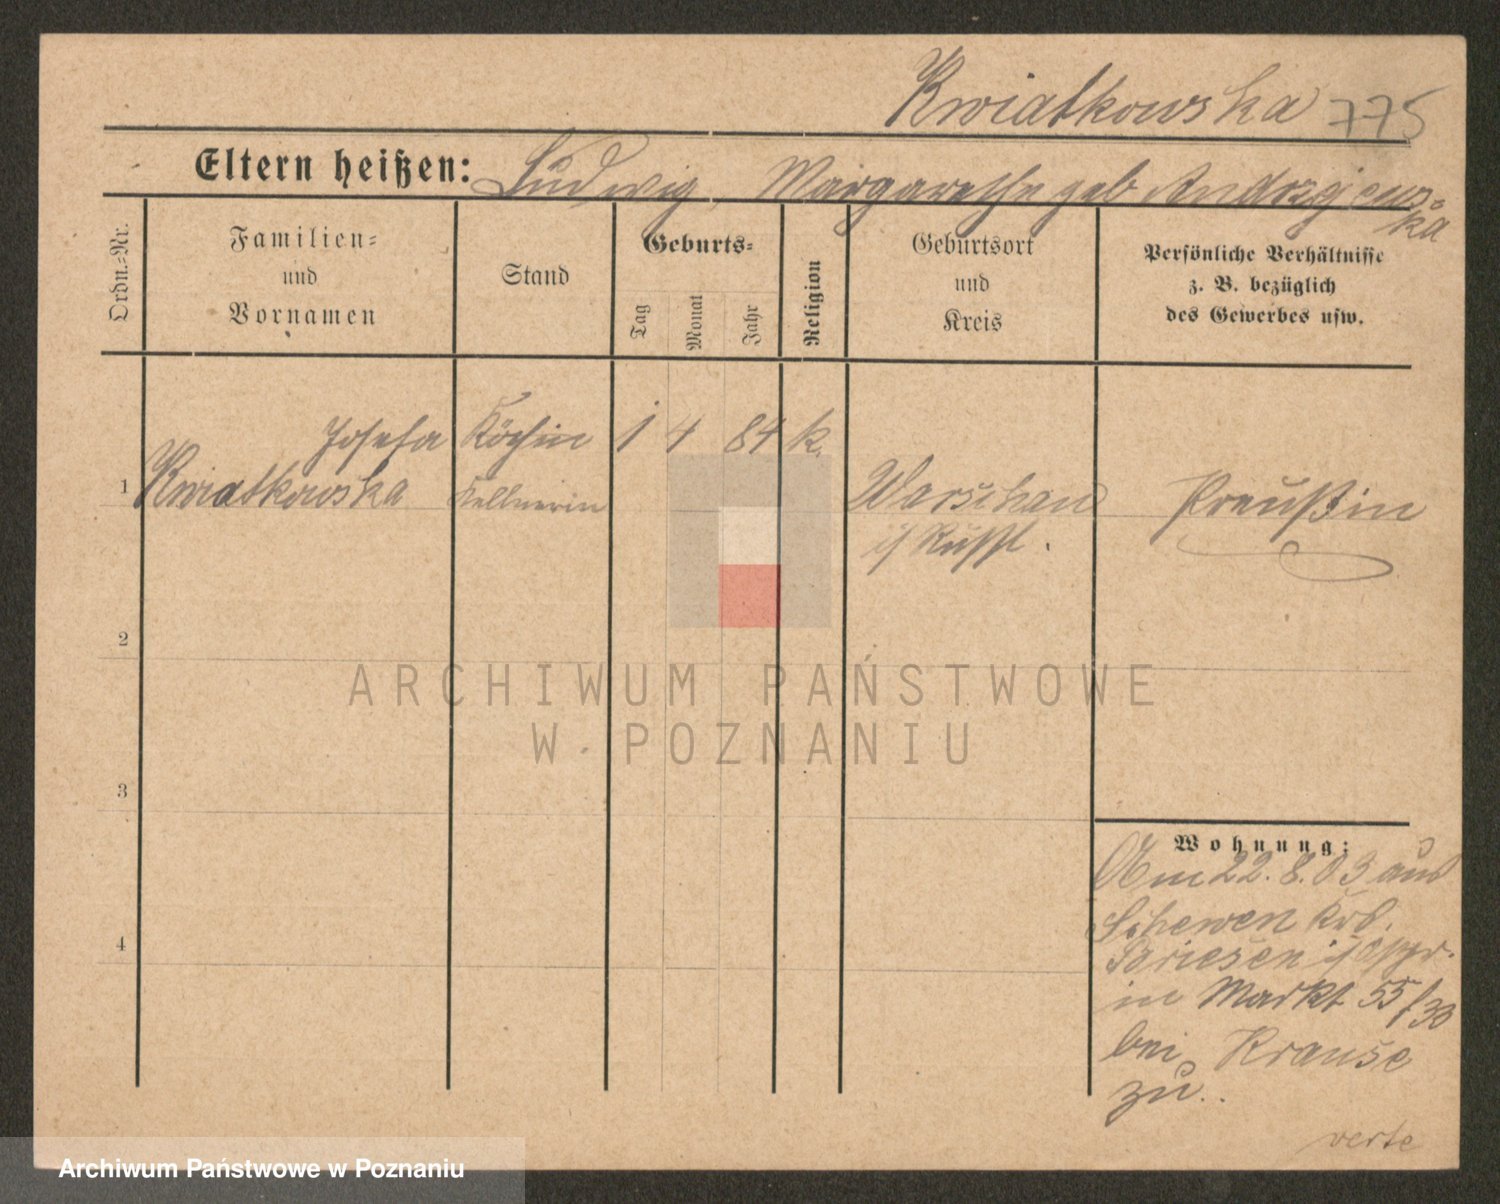 Kwiatkowska 775
Eltern heißen: Ludwig, Margarethe geb Andrzjews=
ka
Ordn.-Nr.
Familien-
und
Vornamen
Stand
Geburts-
Tag
Monat
Jahr
Religion
Geburtsort
und
Kreis
Persönliche Verhältnisse
z. B. bezüglich
des Gewerbes usw.
Josefa Köchin 1 4 84 k.
1 Kwiatkowska Kellnerin Warschau Preußin
i/ Rußl.
2
3
4
Wohnung:
Am 22.8.03 aus
Schewen Krs.
Briesen i/
in Markt 55/
bei Krause
zu.
verte
ARCHIWUM PAŃSTWOWE
W POZNANIU
Archiwum Państwowe w Poznaniu